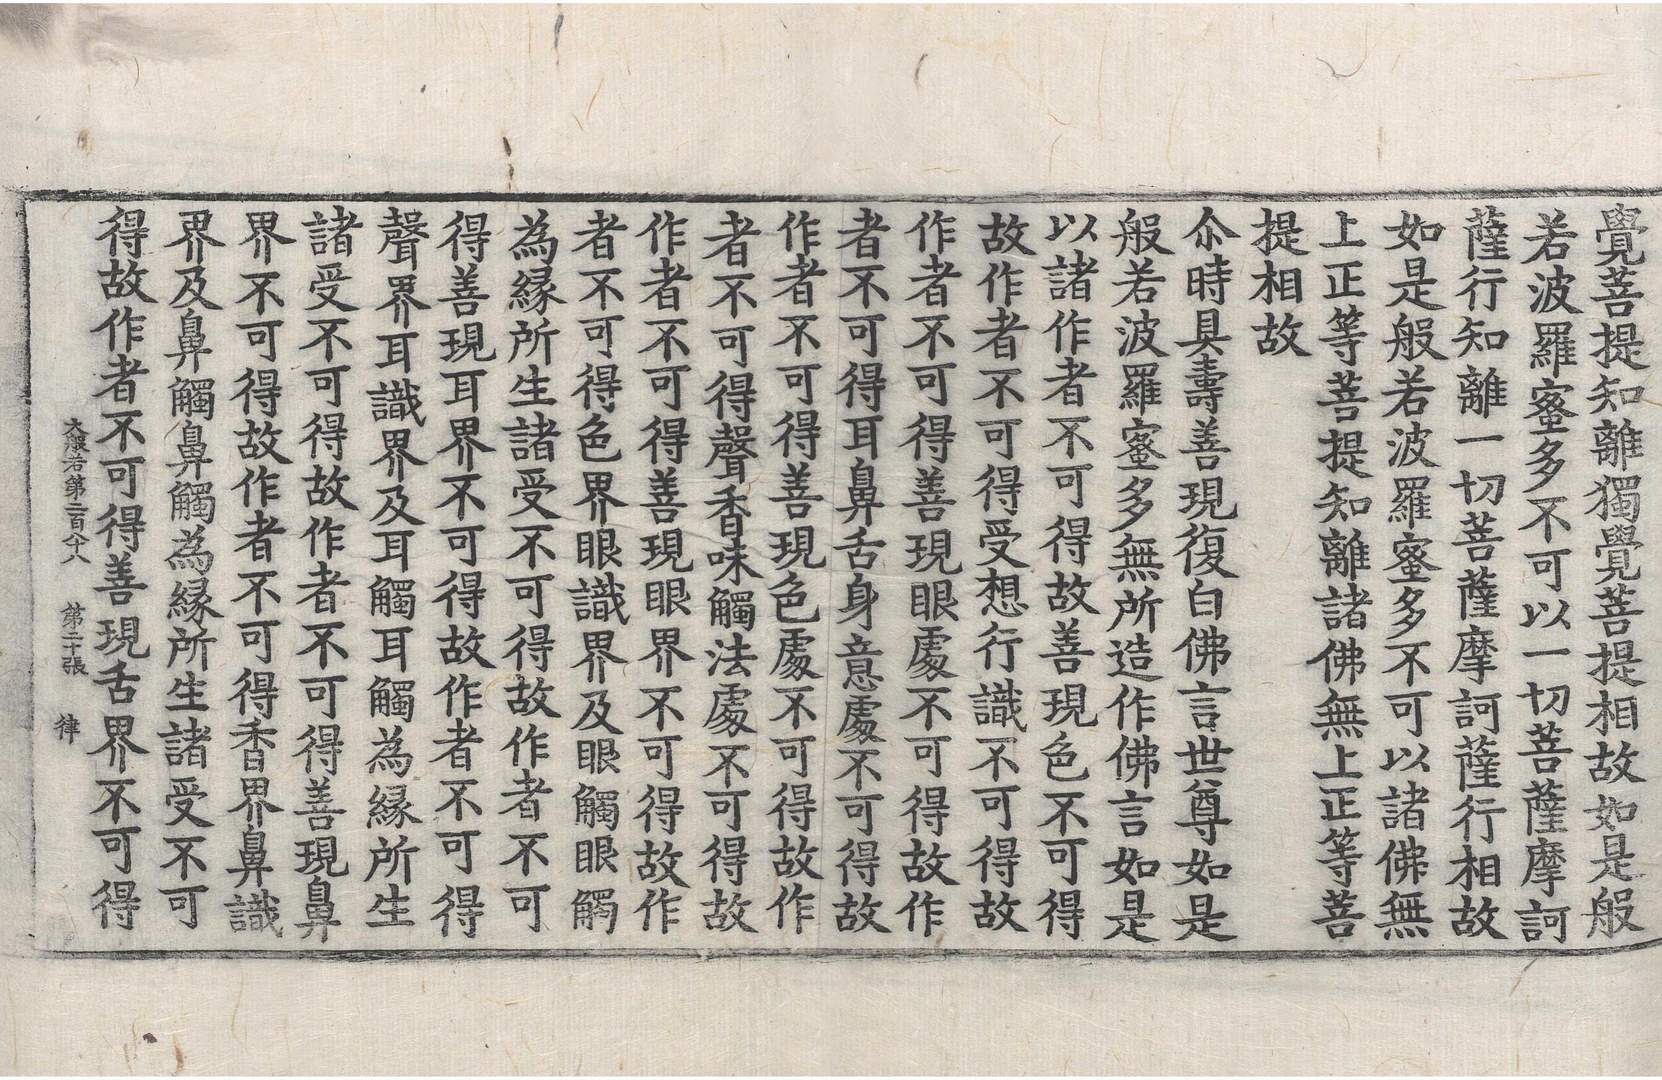 覺菩提知離獨覺菩提相故如是般
若波羅蜜多不可以一切菩薩摩訶
薩行知離一切菩薩摩訶薩行相故
如是般若波羅蜜多不可以諸佛無
上正等菩提知離諸佛無上正等菩
提相故
尒時具壽善現復白佛言世尊如是
般若波羅蜜多無所造作佛言如是
以諸作者不可得故善現色不可得
故作者不可得受想行識不可得故
作者不可得善現眼處不可得故作
者不可得耳鼻舌身意處不可得故
作者不可得善現色處不可得故作
者不可得聲香味觸法處不可得故
作者不可得善現眼界不可得故作
者不可得色界眼識界及眼觸眼觸
為緣所生諸受不可得故作者不可
得善現耳界不可得故作者不可得
聲界耳識界及耳觸耳觸為緣所生
諸受不可得故作者不可得善現鼻
界不可得故作者不可得香界鼻識
界及鼻觸鼻觸為緣所生諸受不可
得故作者不可得善現舌界不可得
大般若第二百八十八 第二十張 律